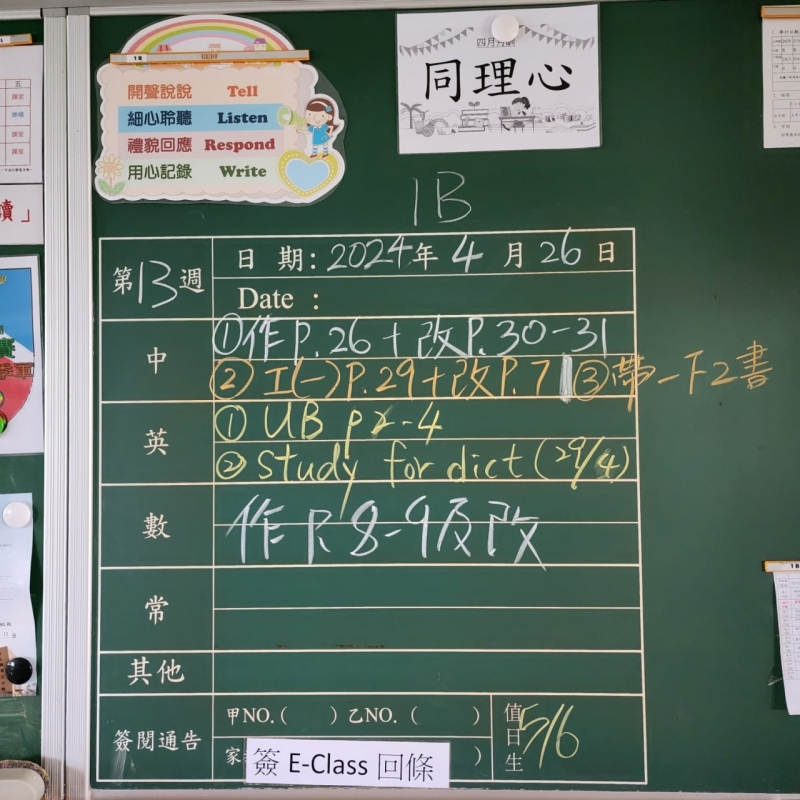 開聲說說 Tell
細心聆聽 Listen
禮貌回應 Respond
用心記錄 Write
同理心
1B
第13週
日 期：2024年 4 月 26 日
Date :
中
①作P.26+改P.30-31
②工(一)P.29+改P.7 ③帶一下2書
英
① UB p2-4
② Study for dict (29/4)
數
作P.8-9及改
常
其他
簽閱通告
甲NO.( ) 乙NO. ( )
簽 E-Class 回條
值日生 5/6